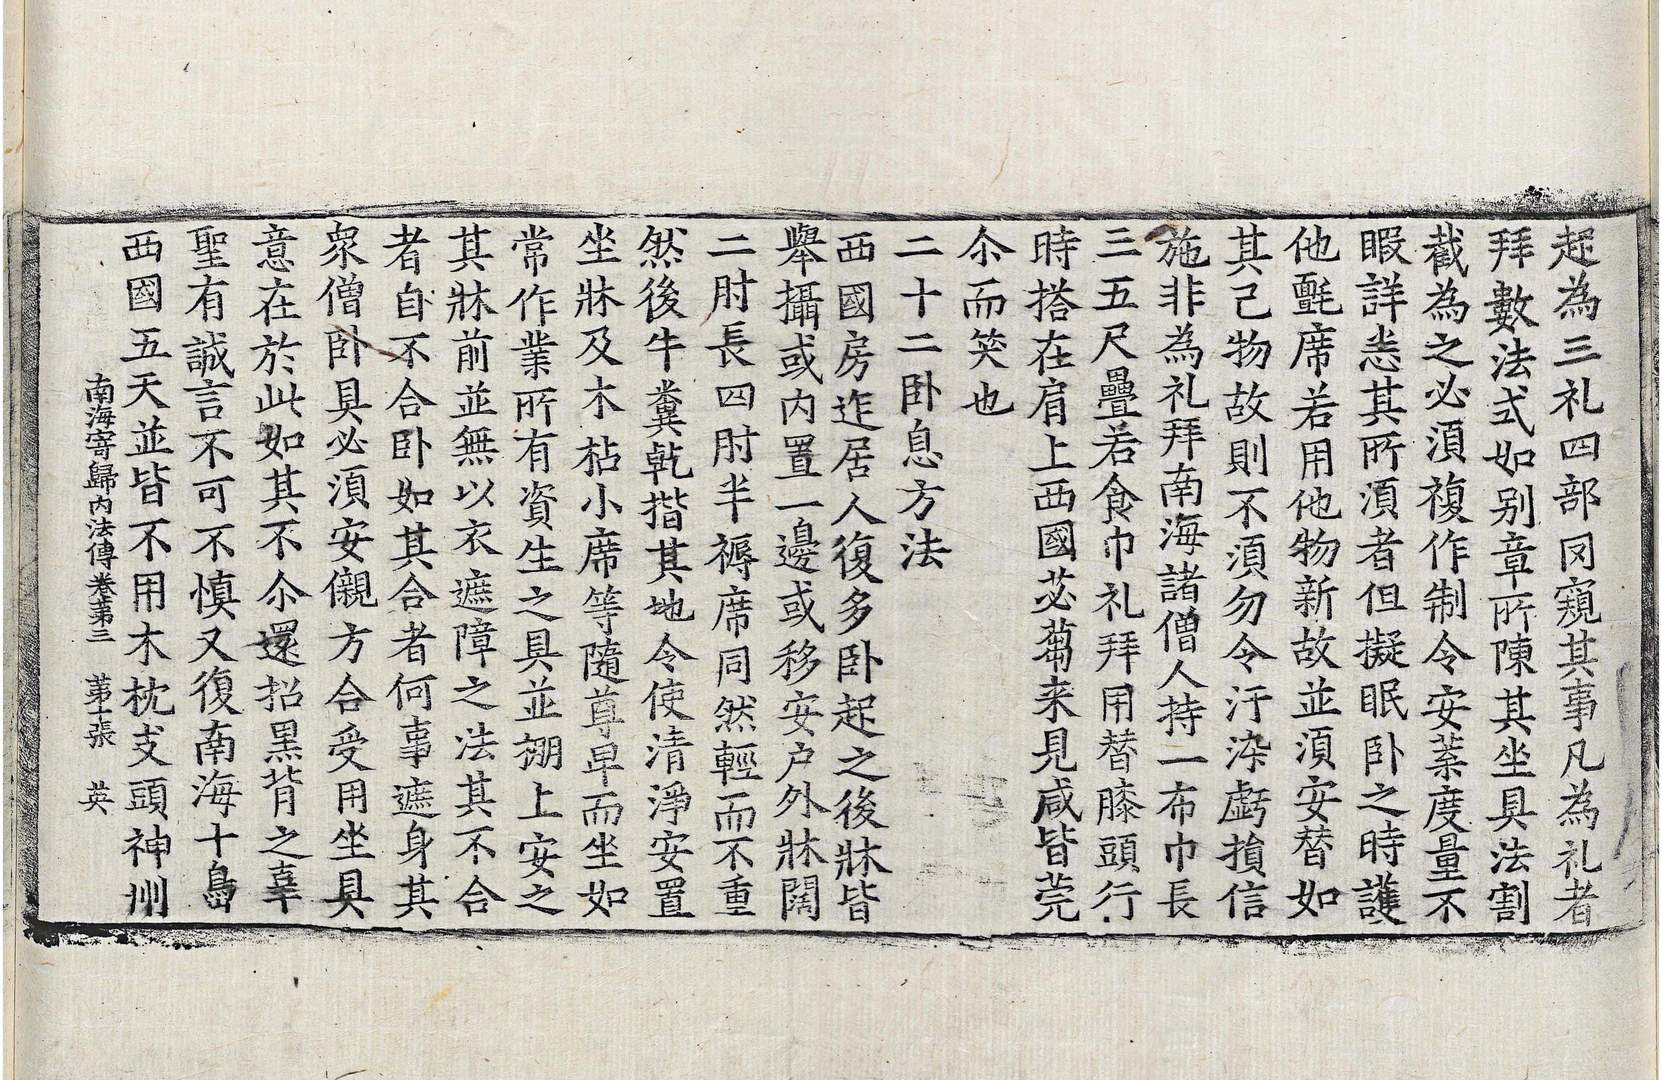 起為三礼四部罔窺其事凡為礼者
拜數法式如别章所陳其坐具法割
截為之必湏複作制令安葉度量不
暇詳悉其所湏者但擬眠卧之時護
他氈席若用他物新故並湏安替如
其己物故則不湏勿令汙染虧損信
施非為礼拜南海諸僧人持一布巾長
三五尺疊若食巾礼拜用替膝頭行
時搭在肩上西國苾蒭来見咸皆莞
尒而笑也
二十二卧息方法
西國房迮居人復多卧起之後牀皆
舉攝或内置一邊或移安户外牀闊
二肘長四肘半褥席同然輕而不重
然後牛糞乾揩其地令使清淨安置
坐牀及木枮小席等隨尊卑而坐如
常作業所有資生之具並棚上安之
其牀前並無以衣遮障之法其不合
者自不合卧如其合者何事遮身其
衆僧卧具必湏安儭方合受用坐具
意在於此如其不尒還招黑背之辜
聖有誠言不可不慎又復南海十島
西國五天並皆不用木枕支頭神州
南海寄歸内法傳卷苐三 苐十張 英